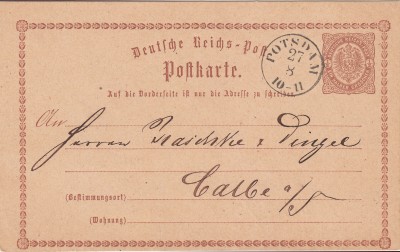 Deutsche Reichs-Post
Postkarte.
POTSDAM
27
8
10-11
Auf die Vorderseite ist nur die Adresse zu schreiben.
An
Herren Raschke & Dingel
Calbe a/S
(Bestimmungsort)
(Wohnung)